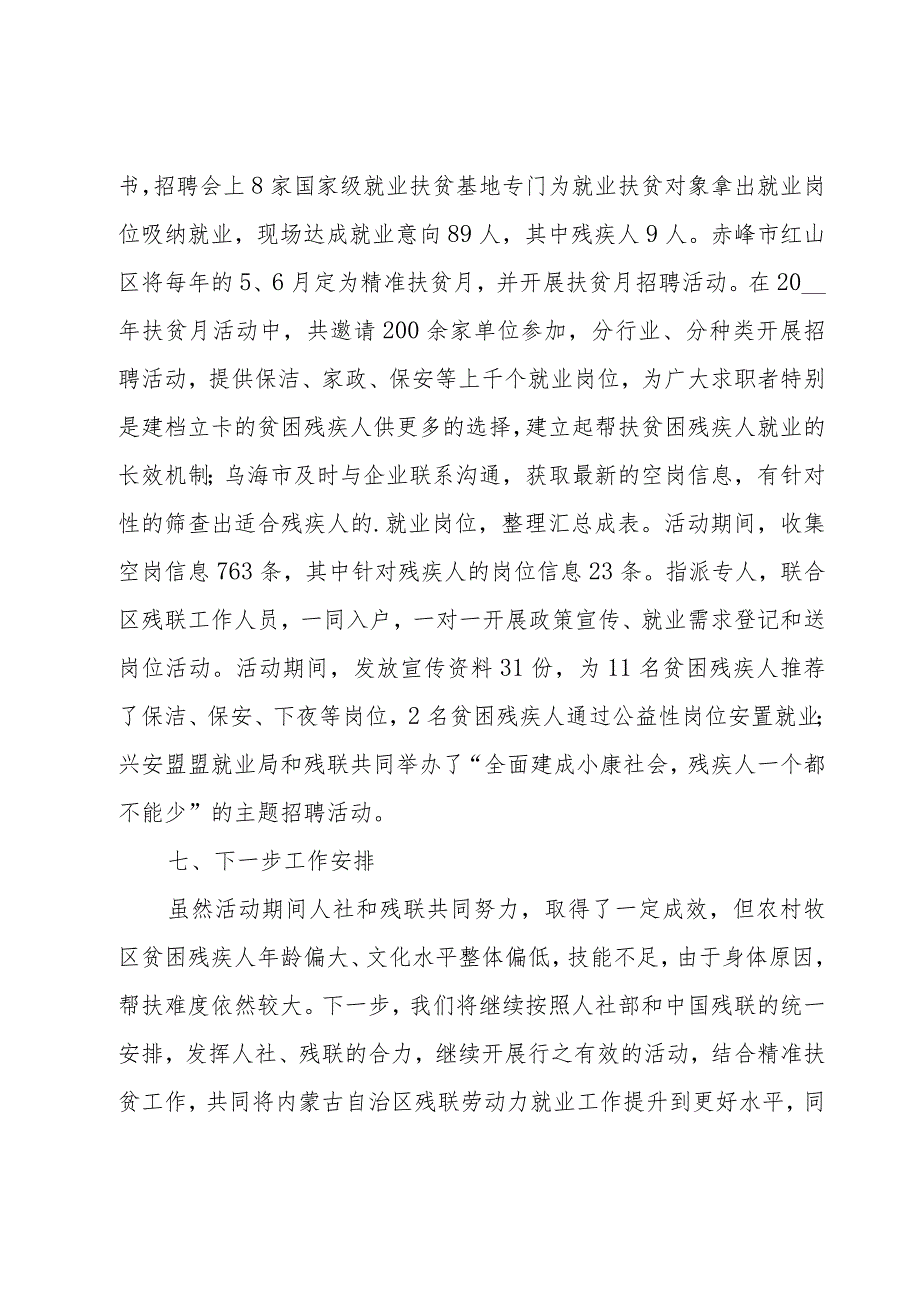 书,招聘会上 8 家国家级就业扶贫基地专门为就业扶贫对象拿出就业岗
位吸纳就业，现场达成就业意向 89 人，其中残疾人 9 人。赤峰市红山
区将每年的 5、6 月定为精准扶贫月，并开展扶贫月招聘活动。在 20__
年扶贫月活动中，共邀请 200 余家单位参加，分行业、分种类开展招
聘活动，提供保洁、家政、保安等上千个就业岗位，为广大求职者特别
是建档立卡的贫困残疾人供更多的选择,建立起帮扶贫困残疾人就业的
长效机制;乌海市及时与企业联系沟通，获取最新的空岗信息，有针对
性的筛查出适合残疾人的.就业岗位，整理汇总成表。活动期间，收集
空岗信息 763 条，其中针对残疾人的岗位信息 23 条。指派专人，联合
区残联工作人员，一同入户，一对一开展政策宣传、就业需求登记和送
岗位活动。活动期间，发放宣传资料 31 份，为 11 名贫困残疾人推荐
了保洁、保安、下夜等岗位，2 名贫困残疾人通过公益性岗位安置就业;
兴安盟盟就业局和残联共同举办了“全面建成小康社会,残疾人一个都
不能少”的主题招聘活动。
七、下一步工作安排
虽然活动期间人社和残联共同努力，取得了一定成效，但农村牧
区贫困残疾人年龄偏大、文化水平整体偏低，技能不足，由于身体原因，
帮扶难度依然较大。下一步，我们将继续按照人社部和中国残联的统一
安排，发挥人社、残联的合力，继续开展行之有效的活动，结合精准扶
贫工作，共同将内蒙古自治区残联劳动力就业工作提升到更好水平，同